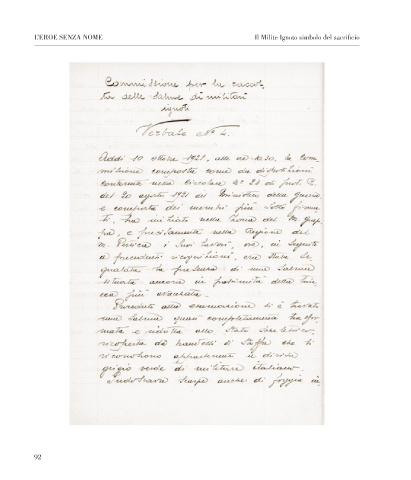 L'EROE SENZA NOME
Il Milite Ignoto simbolo del sacrificio
Commissione per la raccol-
ta delle Salme di militari
ignoti
Verbale N° 4.
Addì 10 ottobre 1921, alle ore 10.30, la Com-
missione composta come da disposizioni
contenute nella Circolare N° 28 di prot. R.
del 20 agosto 1921 del Ministero della Guerra
e composta dei membri più sotto firma-
ti, ha iniziato nella Zona del M. Grap-
pa, e precisamente nella Regione del
M. Pertica i suoi lavori, ove, in seguito
a precedenti ricognizioni, era stata se-
gnalata la presenza di una Salma
situata ancora in prossimità della trin-
cea più avanzata.
Proceduto alla esumazione si è trovata
una Salma quasi completamente trasfor-
mata e ridotta allo stato scheletrico,
ricoperta da brandelli di Stoffa che si
riconoscono appartenenti a divisa
grigio verde di militare italiano.
Indossava scarpe anche di foggia i
92